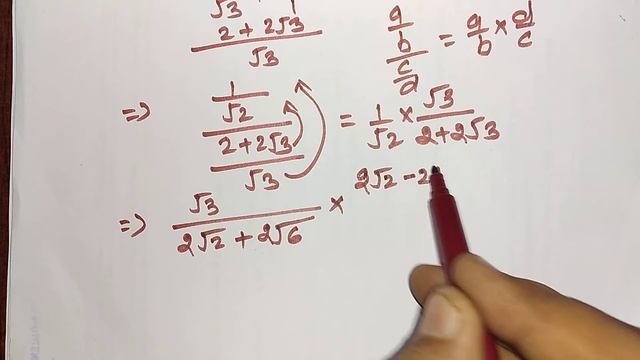 √3 1
2 + 2√3
√3
a/b / c/d = a/b × d/c
=> 1/√2 / (2 + 2√3)/√3 = 1/√2 × √3/(2 + 2√3)
=> √3/(2√2 + 2√6) × 2√2 - 2